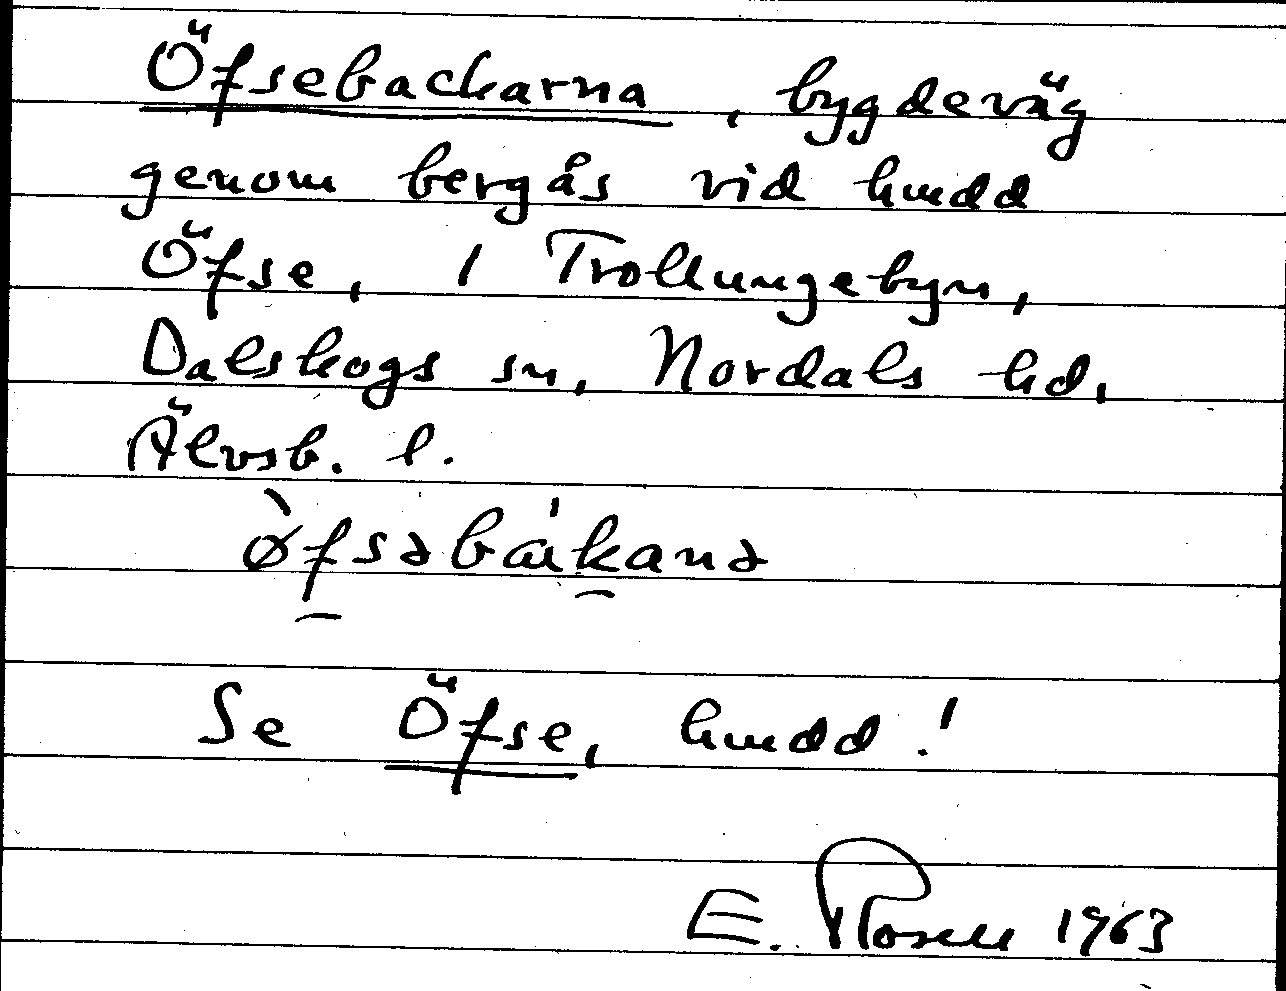 Öfsebackarna, bygdeväg
genom bergås vid hmdd
Öfse, 1 Trollungebyn,
Dalskogs sn, Nordals hd,
Älvsb. l.
ø̀fsəbákanə
Se Öfse, hmdd!
E. Rosell 1963